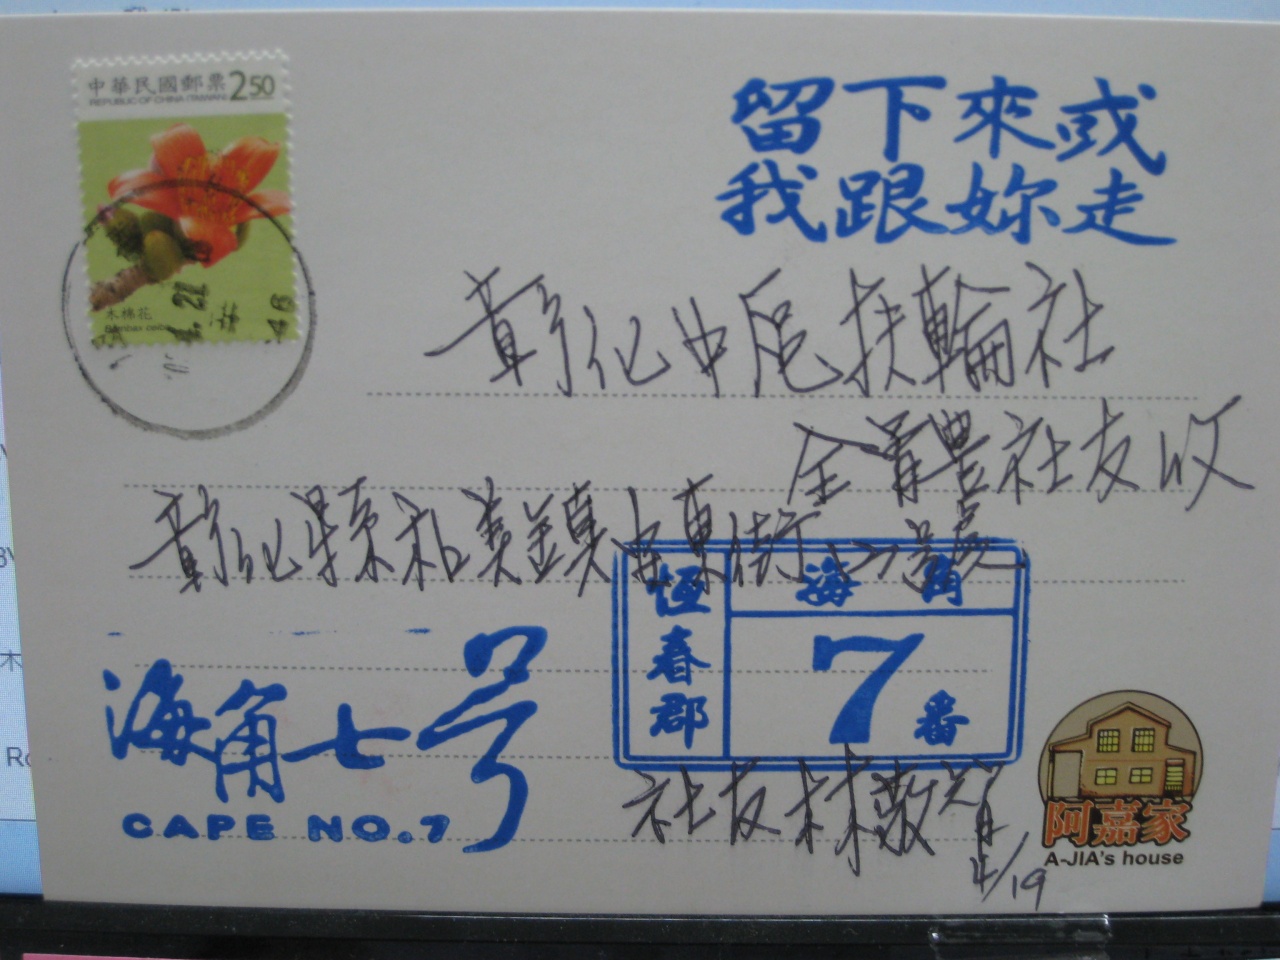 中華民國郵票 250
REPUBLIC OF CHINA (TAIWAN)
木棉花
留下來或
我跟妳走
彰化中區扶輪社
全體社友收
彰化縣和美鎮 東街 號
恆春郡
海角
7番
海角七号
CAPE NO.7
社友林
4/19
阿嘉家
A-JIA's house